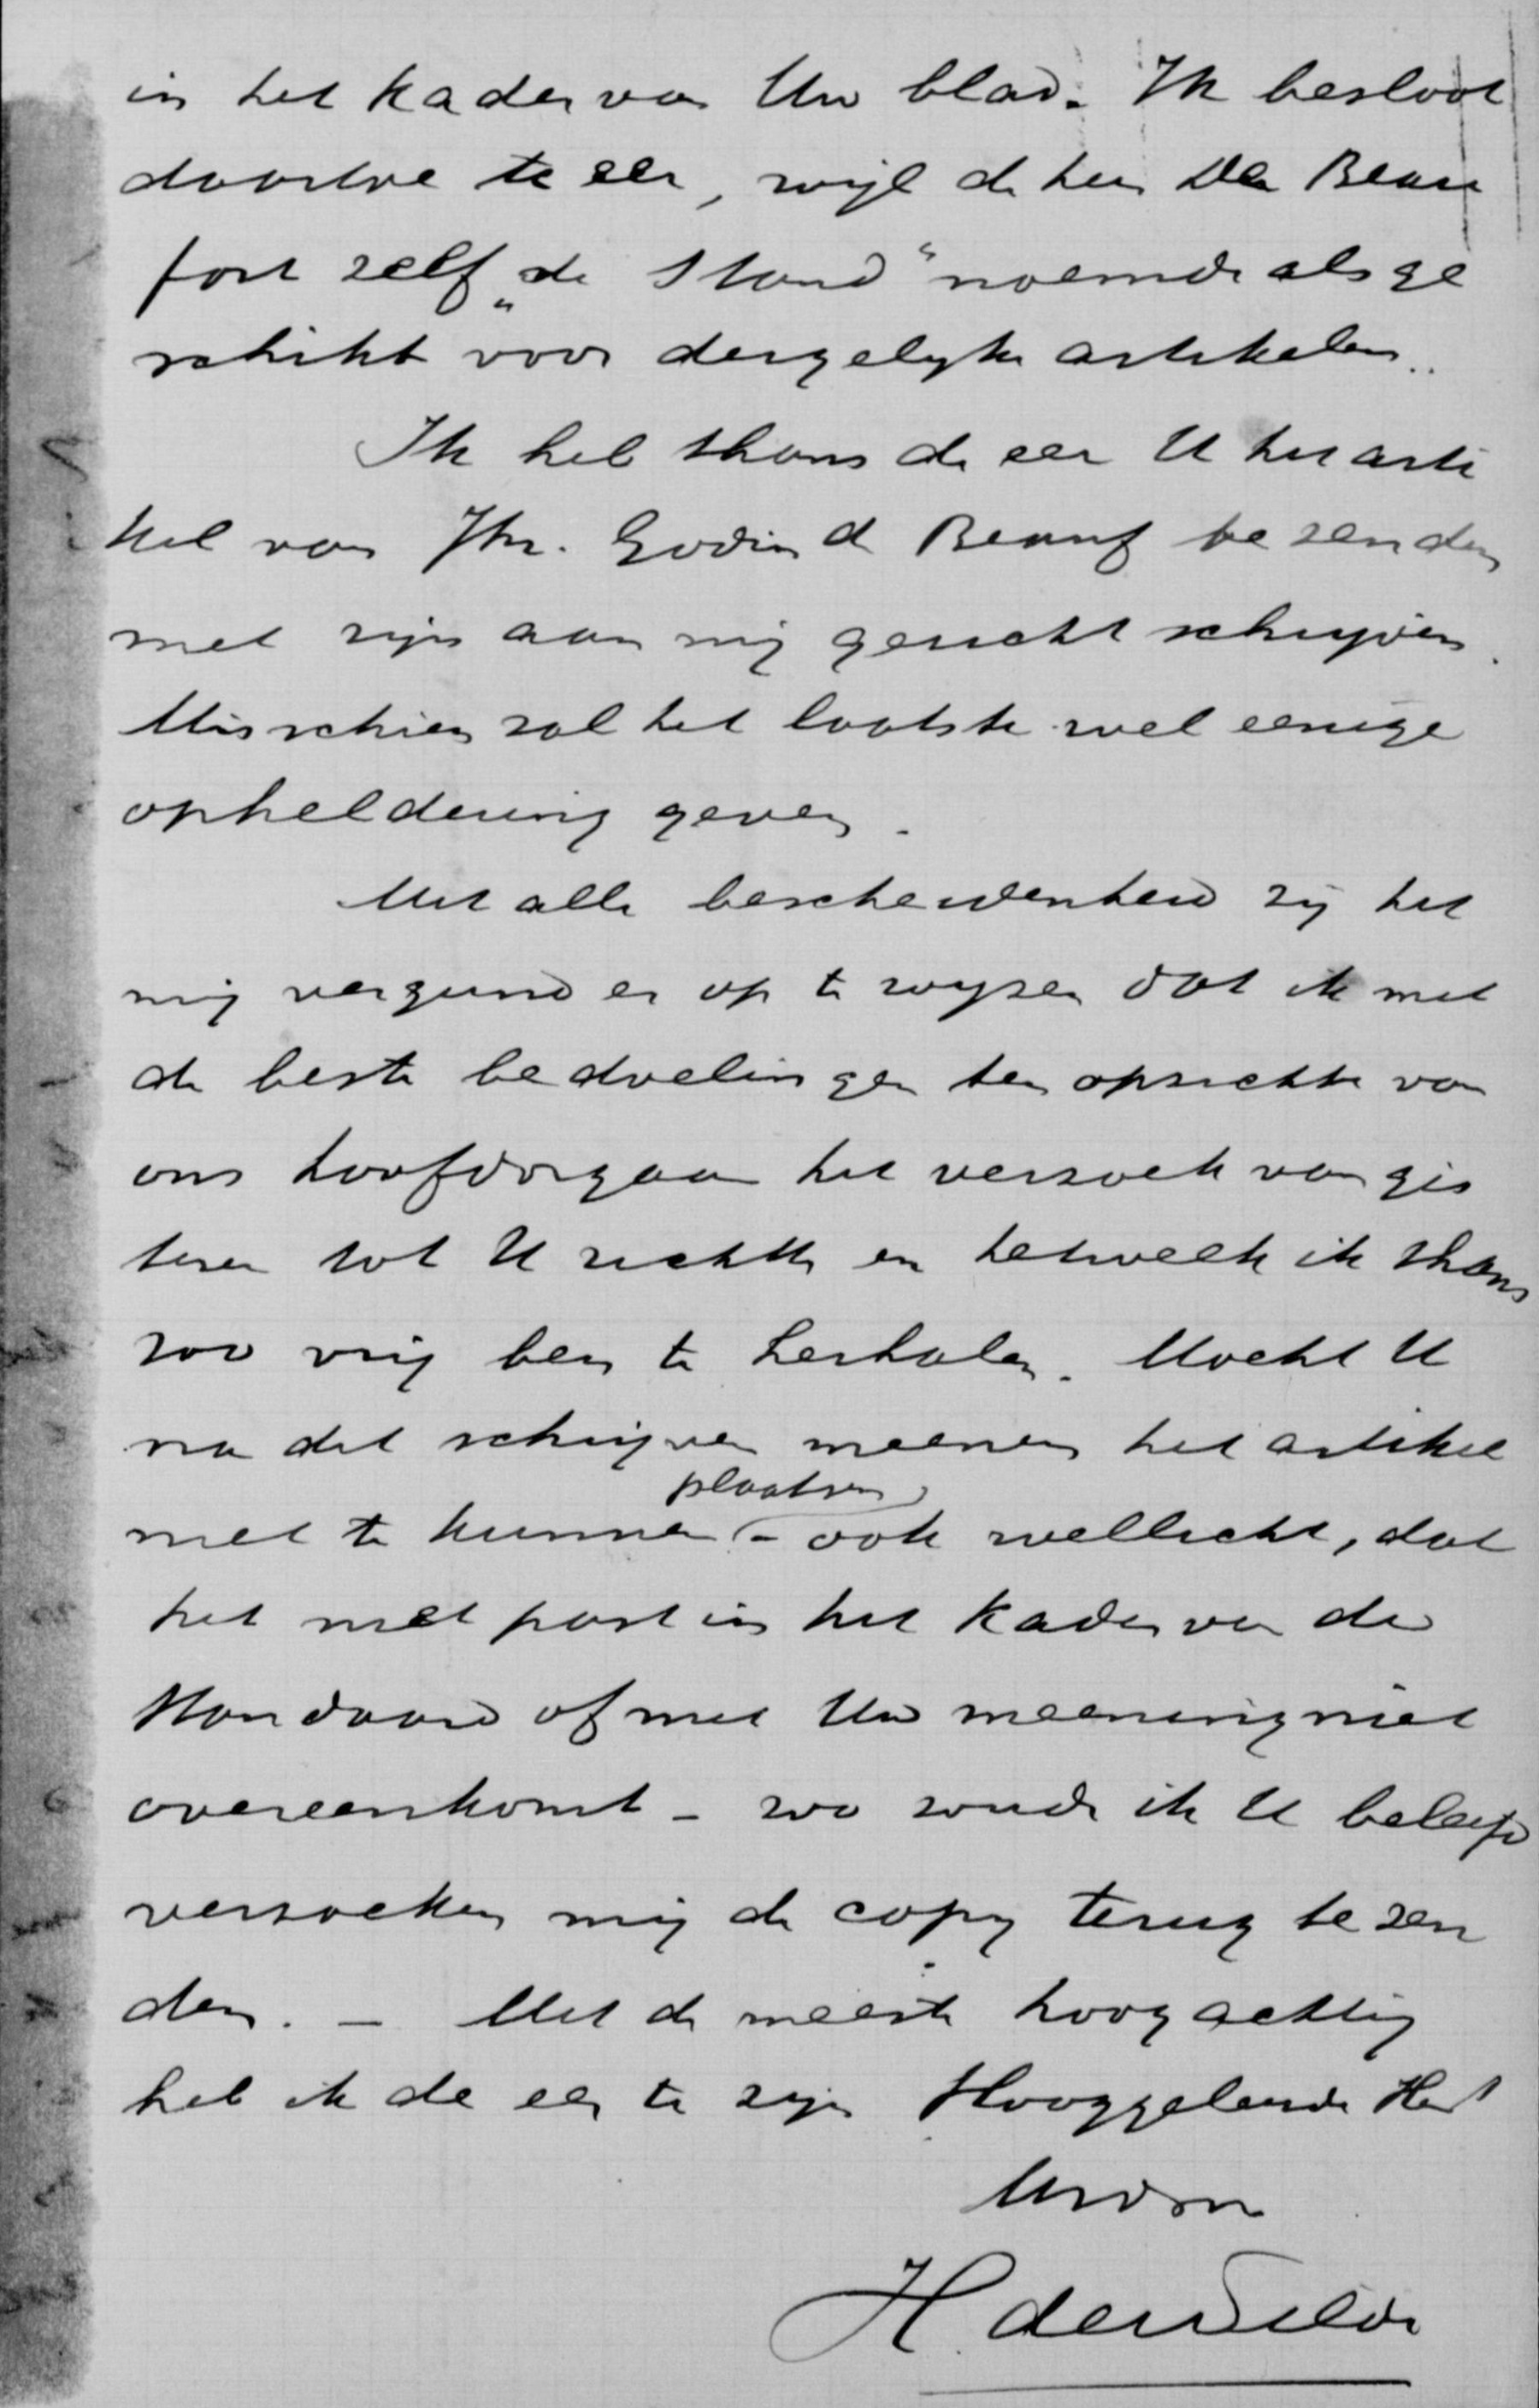 in het kader van Uw blad. Ik besloot
daartoe te eer, wijl de heer De Beau
fort zelf „de Stand“ noemde als ge
schikt voor dergelijke artikelen.
Ik heb thans de eer U het arti
kel van Jhr. Godin d Beauf te zenden
met zijn aan mij gericht schrijven.
Misschien zal het laatste wel eenige
opheldering geven.
Met alle bescheidenheid zij het
mij vergund er op te wijzen dat ik met
de beste bedoelingen ten opzichte van
ons hoofdorgaan het verzoek van gis
teren tot U richtte en hetwelk ik thans
zoo vrij ben te herhalen. Mocht U
na dit schrijven meenen het artikel
niet te kunnen plaatsen - ook wellicht, dat
het niet past in het kader van de
Standaard of met Uw meening niet
overeenkomt - zoo zoude ik U beleefd
verzoeken mij de copy terug te zen
den. - Met de meeste hoogachting
heb ik de eer te zijn Hooggeleerde Heer
Uwdw
H de Wilde